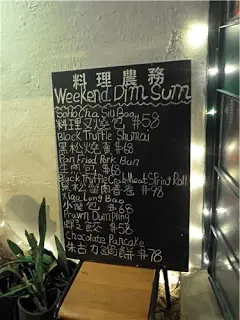 料理農務
Weekend Dim Sum
SoHo Cha Siu Bao
料理叉燒包 $58
Black Truffle Shumai
黑松燒賣 $68
Pan Fried Pork Bun
生煎包 $68
Black Truffle Crab Meat Spring Roll
黑松蟹肉春卷 $98
Xiao Long Bao
小籠包 $68
Prawn Dumpling
蝦餃 $58
Chocolate Pancake
朱古力鍋餅 $78